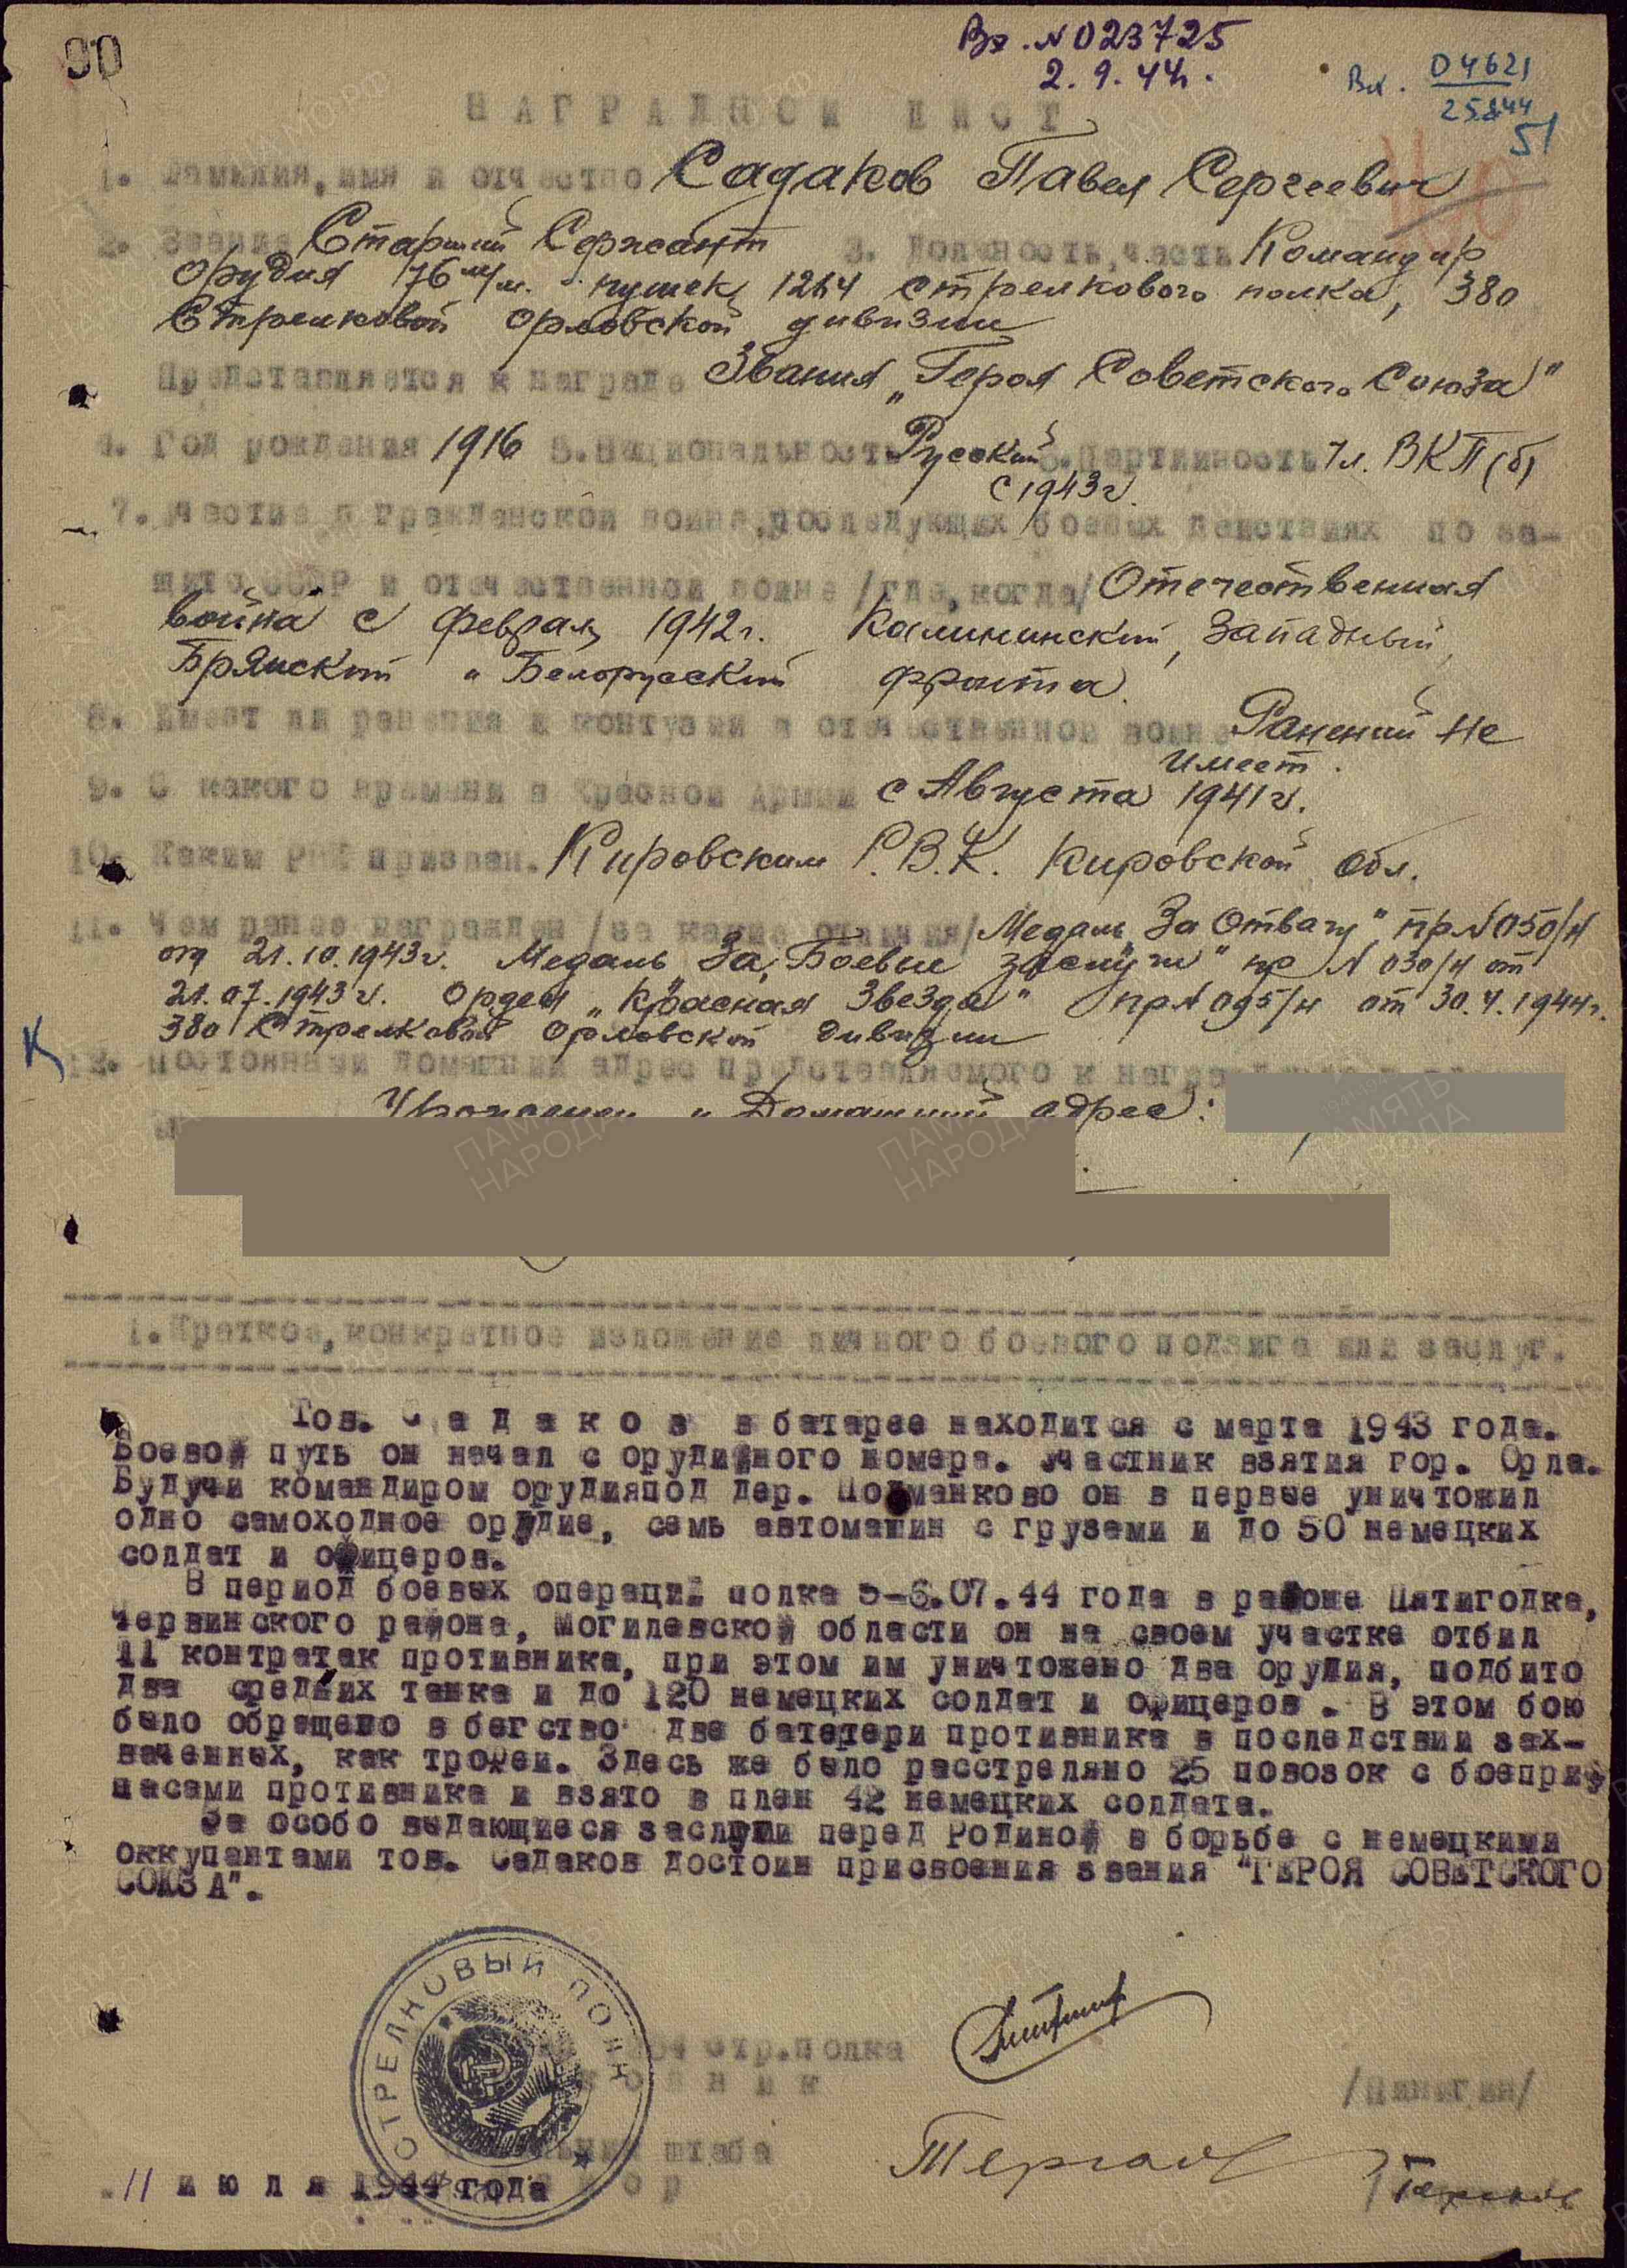 90
Вх. N 023725
2.9.44г.
Вх. 04621
25.8.44
51
НАГРАДНОЙ ЛИСТ
1. Фамилия, имя и отчество Садаков Павел Сергеевич
2. Звание Старший Сержант 3. Должность, часть Командир
орудия 76 м/м. пушек, 1264 стрелкового полка, 380
Стрелковой Орловской дивизии
Представляется к награде Звания „Героя Советского Союза"
4. Год рождения 1916 5. Национальность Русский 6. Партийность Чл. ВКП(б)
с 1943г.
7. Участие в гражданской войне, последующих боевых действиях по за-
щите СССР и отечественной войне /где, когда/ Отечественная
война с февраля 1942г. Калининский, Западный,
Брянский и Белорусский фронта.
8. Имеет ли ранения и контузии в отечественной войне Ранений не
имеет.
9. С какого времени в Красной Армии с Августа 1941г.
10. Каким РВК призван. Кировским Р.В.К. Кировской обл.
11. Чем ранее награжден /за какие отличия/ Медаль „За Отвагу" пр N 050/н
от 21.10.1943г. Медаль „За Боевые заслуги" пр N 030/н от
21.07.1943г. Орден „Красная Звезда" пр N 095/н от 30.4.1944г.
380 Стрелковой Орловской дивизии
12. Постоянный домашний адрес представляемого к награ
Уроженец и Домашний адрес:
1. Краткое, конкретное изложение личного боевого подвига или заслуг.
Тов. С а д а к о в в батарее находится с марта 1943 года.
Боевой путь он начал с орудийного номера. Участник взятия гор. Орла.
Будучи командиром орудияпод дер. Подманково он в первые уничтожил
одно самоходное орудие, семь автомашин с грузами и до 50 немецких
солдат и офицеров.
В период боевых операций полка 5-6.07.44 года в районе Пятигодка,
Червинского района, Могилевской области он на своем участке отбил
11 контратак противника, при этом им уничтожено два орудия, подбито
два средних танка и до 120 немецких солдат и офицеров. В этом бою
было обращено в бегство две батетери противника в последствии зах-
ваченных, как трофеи. Здесь же было расстреляно 25 повозок с боепри-
пасами противника и взято в плен 42 немецких солдата.
За особо выдающиеся заслуги перед Родиной в борьбе с немецкими
оккупантами тов. Садаков достоин присвоения звания "ГЕРОЯ СОВЕТСКОГО
СОЮЗА".
СТРЕЛКОВЫЙ ПОЛК
стр.полка
/Пинигин/
штаба
11 и ю л я 1944 года
ПАМЯТЬ НАРОДА